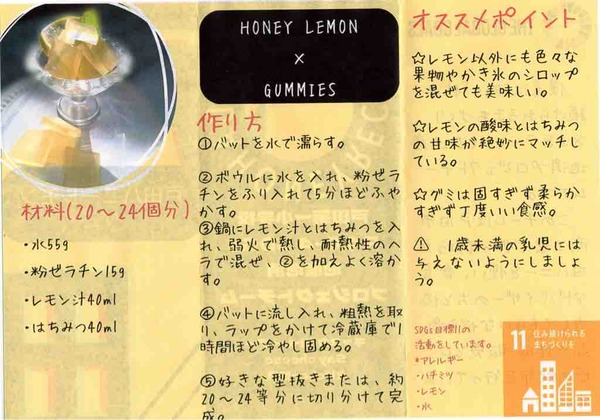 材料(20〜24個分)
・水55g
・粉ゼラチン15g
・レモン汁40ml
・はちみつ40ml
HONEY LEMON
×
GUMMIES
作り方
①バットを水で濡らす。
②ボウルに水を入れ、粉ゼラ
チンをふり入れて5分ほどふや
かす。
③鍋にレモン汁とはちみつを入
れ、弱火で熱し、耐熱性のヘ
ラで混ぜ、②を加えよく溶か
す。
④バットに流し入れ、粗熱を取
り、ラップをかけて冷蔵庫で1
時間ほど冷やし固める。
⑤好きな型抜きまたは、約
20〜24等分に切り分けて完
成。
オススメポイント
☆レモン以外にも色々な
果物やかき氷のシロップ
を混ぜても美味しい。
☆レモンの酸味とはちみつ
の甘味が絶妙にマッチし
ている。
☆グミは固すぎず柔らか
すぎず丁度いい食感。
⚠ 1歳未満の乳児には
与えないようにしましょ
う。
SDGs目標11の
活動をしています。
*アレルギー
・ハチミツ
・レモン
・水
11 住み続けられる
まちづくりを